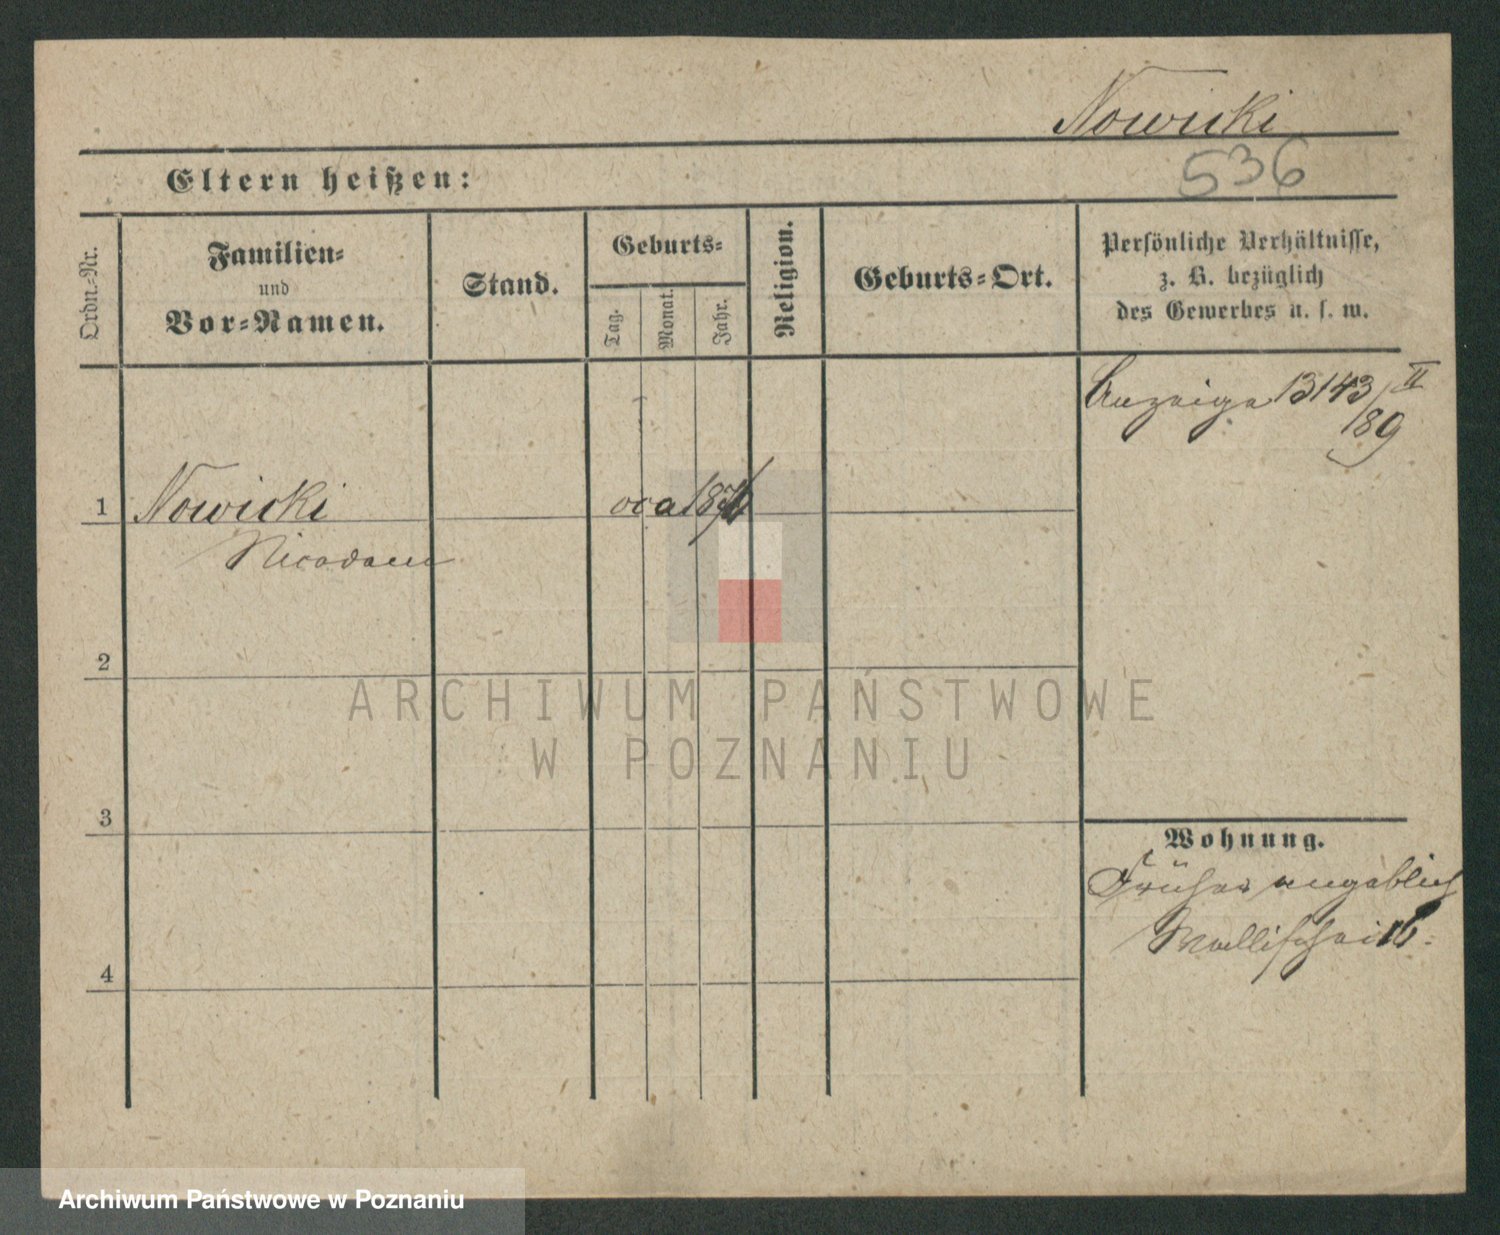 Nowicki
536
Eltern heißen:
Ordn.-Nr.
Familien-
und
Vor-Namen.
Stand.
Geburts-
Tag.
Monat.
Jahr.
Religion.
Geburts-Ort.
Persönliche Verhältnisse,
z. B. bezüglich
des Gewerbes u. s. w.
Anzeige 13143/II
89
1
Nowicki
cca
Nicodem
2
3
4
Wohnung.
Früher angeblich
Wallischei
ARCHIWUM PAŃSTWOWE
W POZNANIU
Archiwum Państwowe w Poznaniu